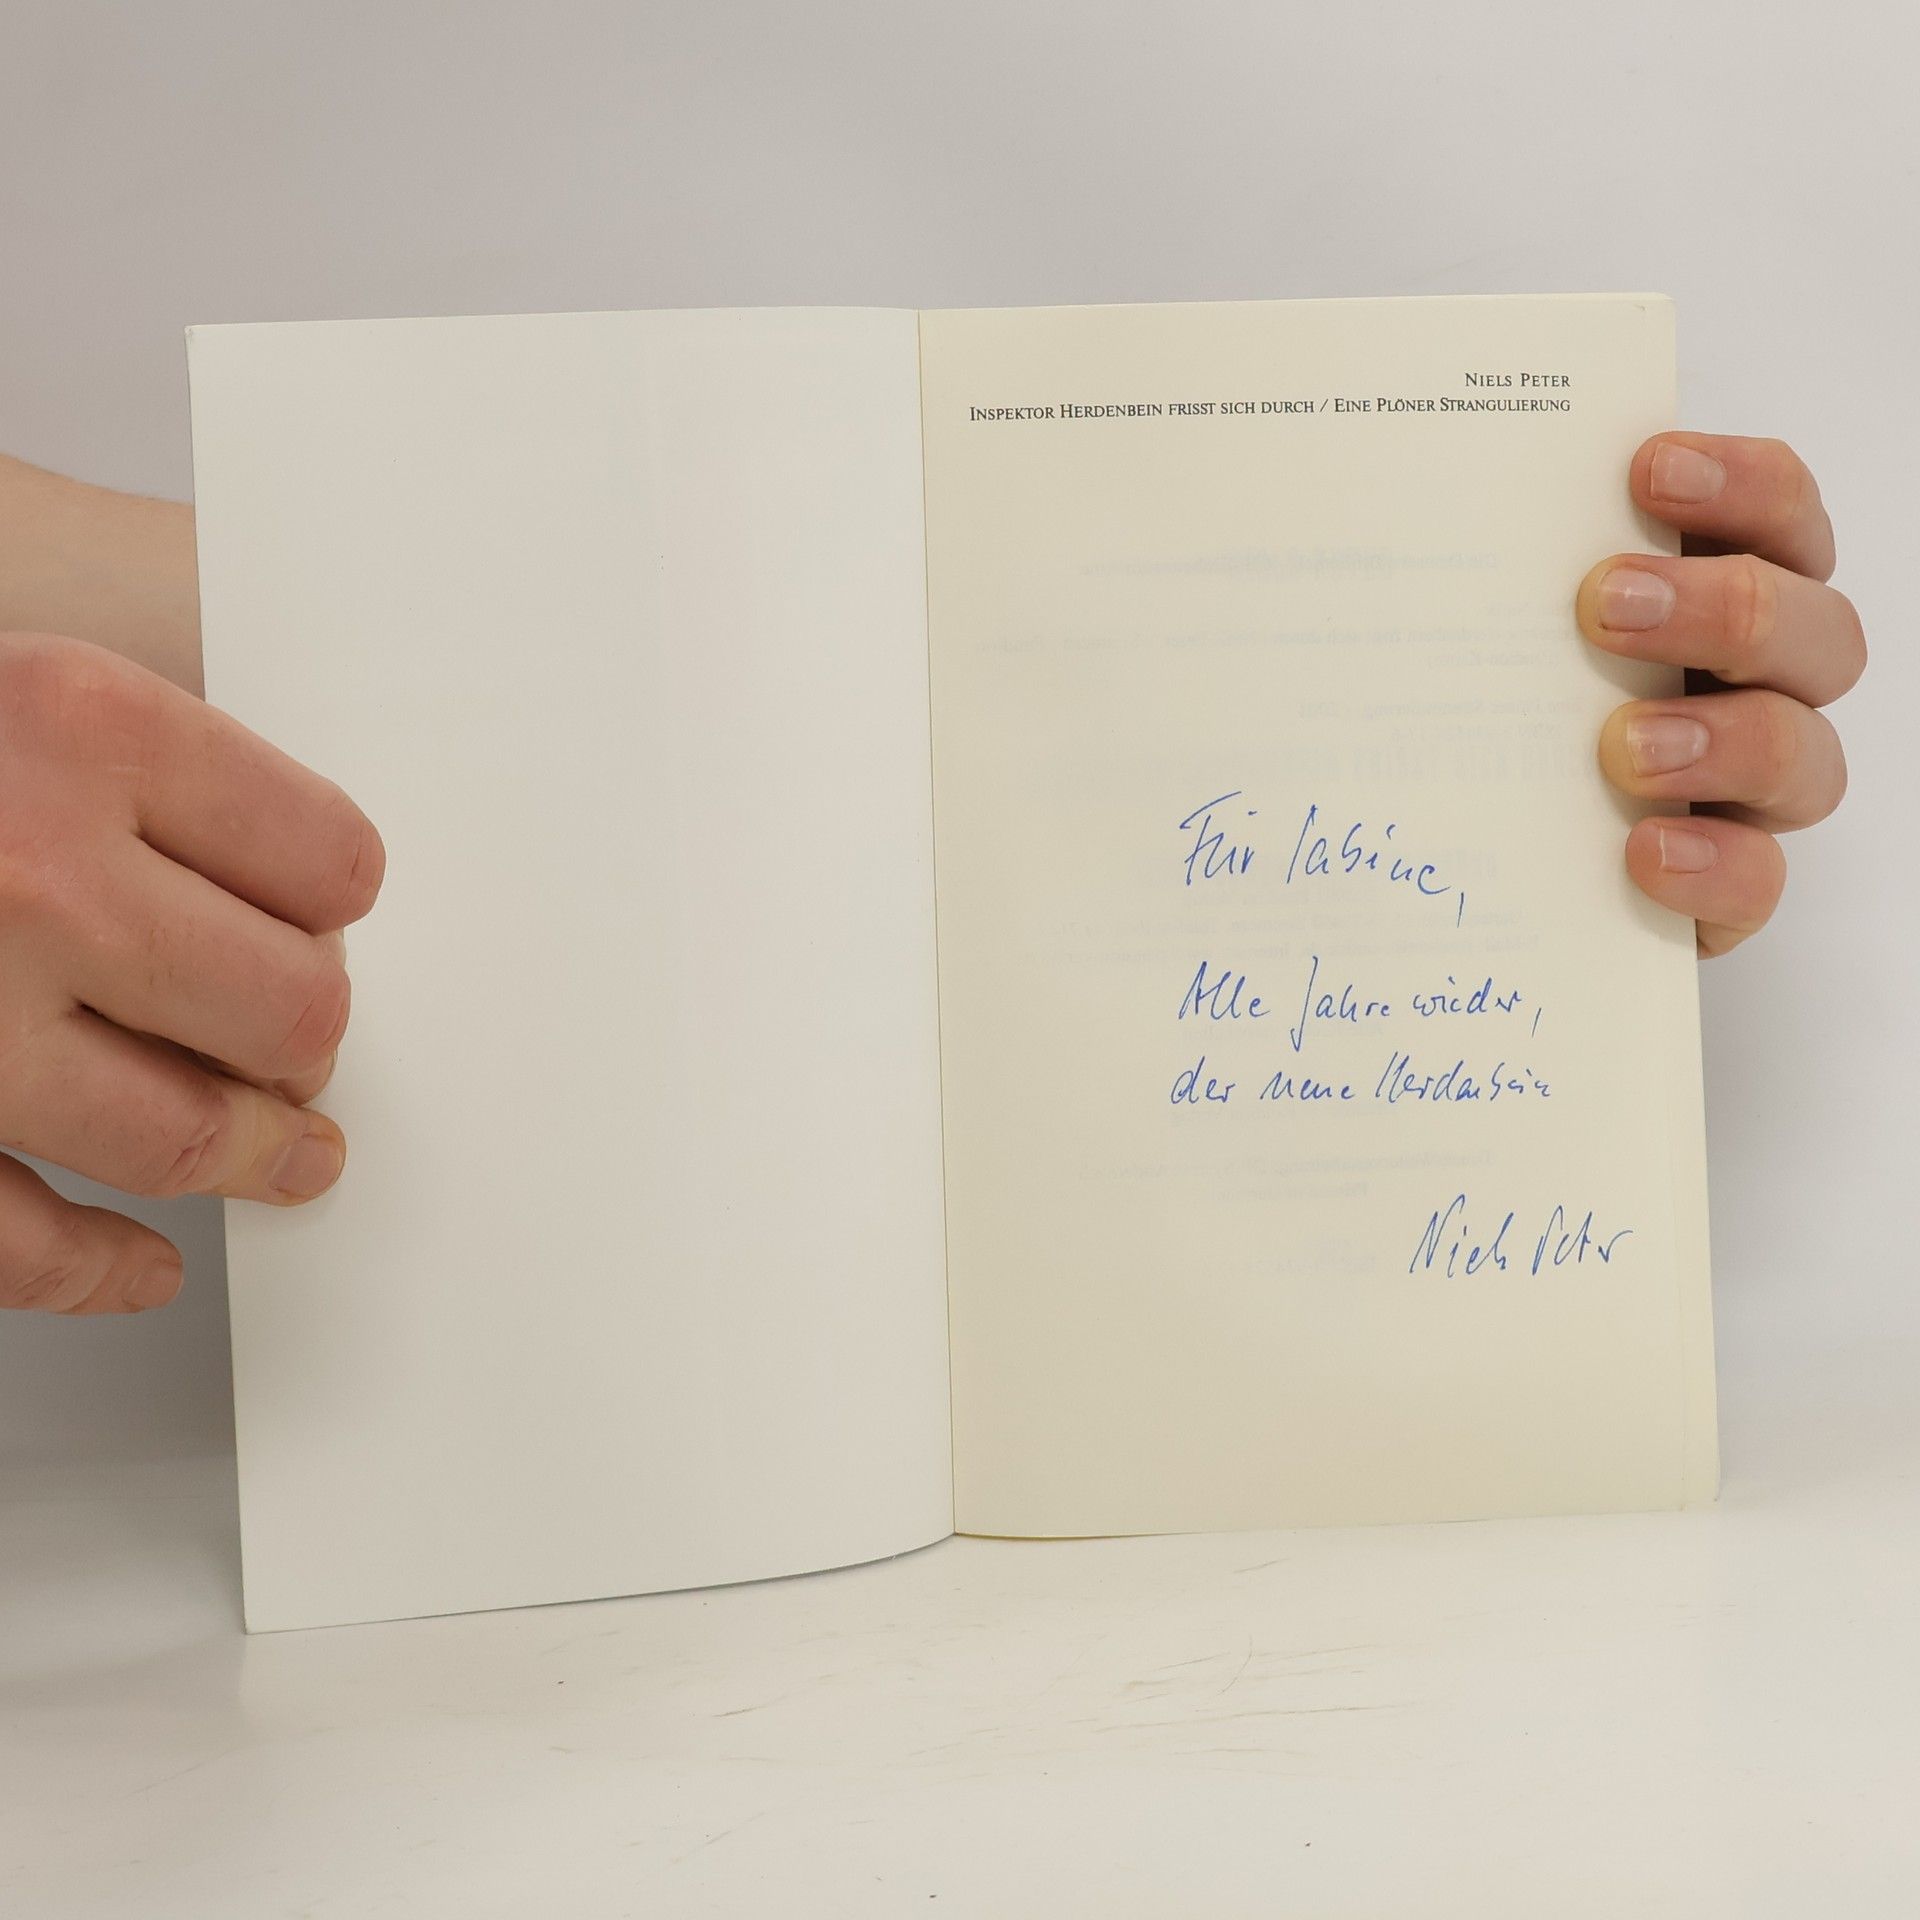 NIELS PETER
INSPEKTOR HERDENBEIN FRISST SICH DURCH / EINE PLÖNER STRANGULIERUNG
Für Sabine,
Alle Jahre wieder,
der neue Herdenbein
Niels Peter